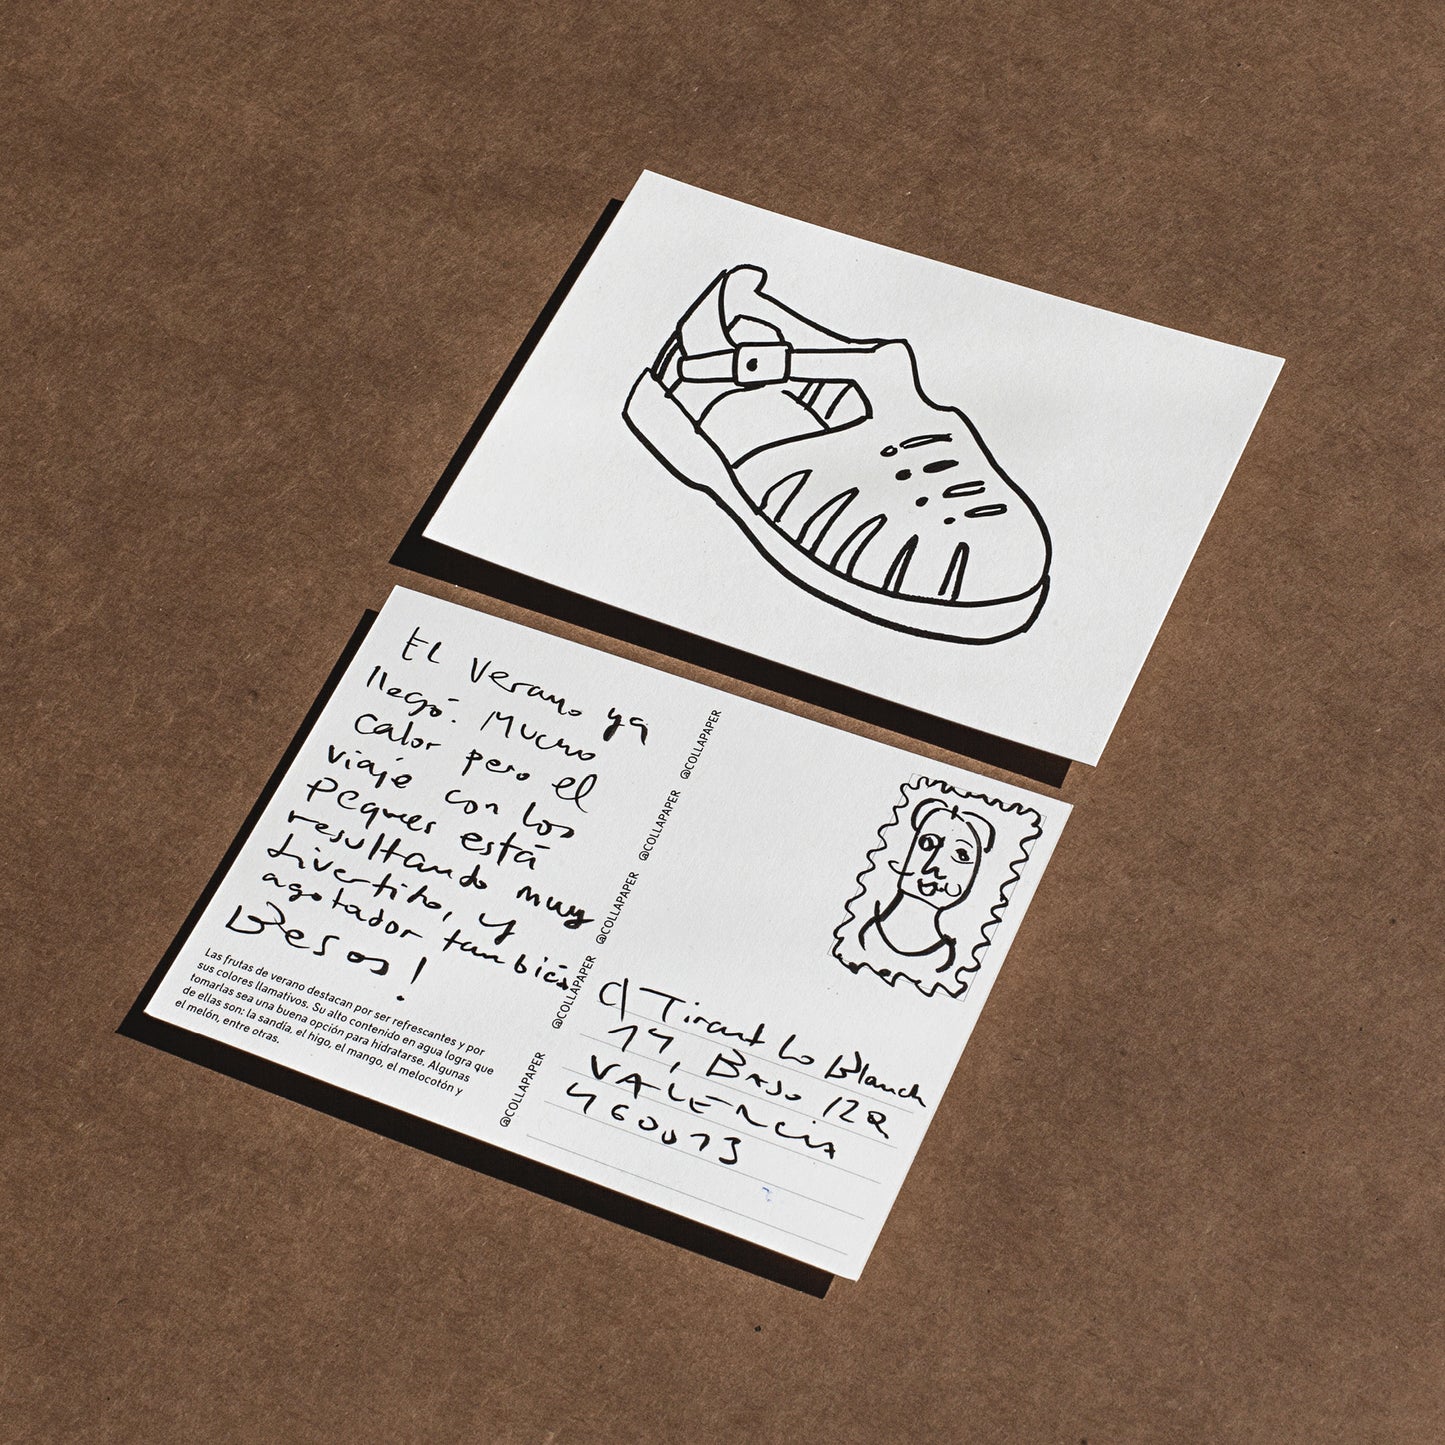 EL Verano ya
llegó. Mucho
calor pero el
viaje con los
peques está
resultando muy
divertido, y
agotador también.
Besos!
Las frutas de verano destacan por ser refrescantes y por
sus colores llamativos. Su alto contenido en agua logra que
tomarlas sea una buena opción para hidratarse. Algunas
de ellas son: la sandía, el higo, el mango, el melocotón y
el melón, entre otras.
@COLLAPAPER
@COLLAPAPER
@COLLAPAPER
@COLLAPAPER
@COLLAPAPER
C/ Tirant Lo Blanch
14, Bajo 12
VALENCIA
460013